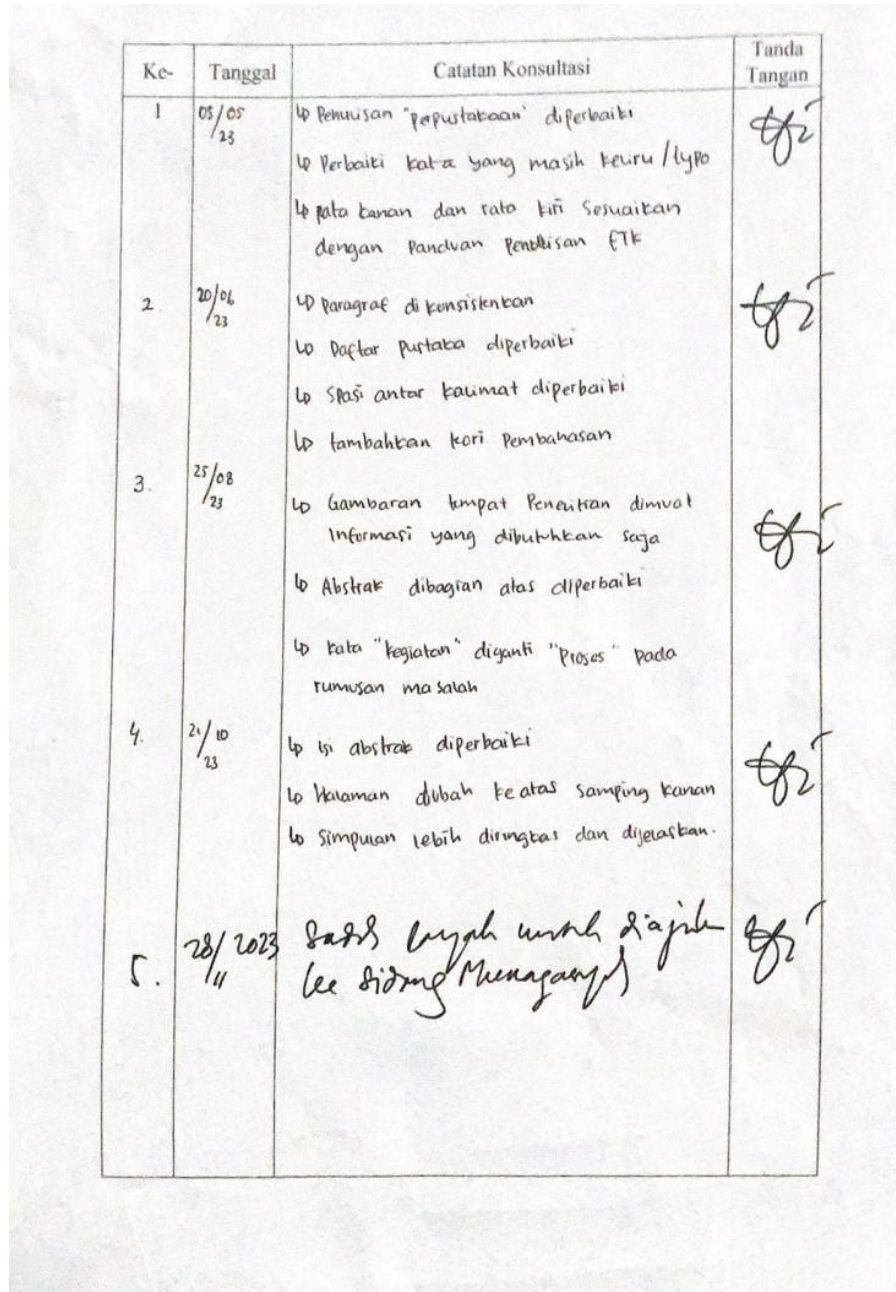 Ke- Tanggal Catatan Konsultasi Tanda Tangan
1 05/05/23 ↳ Penulisan "perpustakaan" diperbaiki
↳ Perbaiki kata yang masih keliru / typo
↳ rata kanan dan rata kiri Sesuaikan
dengan Panduan Penulisan FTK
2. 20/06/23 ↳ Paragraf di konsistenkan
↳ Daftar Pustaka diperbaiki
↳ Spasi antar kalimat diperbaiki
↳ tambahkan teori Pembahasan
3. 25/08/23
↳ Gambaran tempat Penelitian dimuat
Informasi yang dibutuhkan saja
↳ Abstrak dibagian atas diperbaiki
↳ kata "kegiatan" diganti "Proses" pada
rumusan masalah
4. 21/10/23 ↳ isi abstrak diperbaiki
↳ Halaman diubah keatas samping kanan
↳ Simpulan lebih diringkas dan dijelaskan.
5. 28/11 2023 Sudah layak untuk diajukan
ke Sidang Munaqasyah